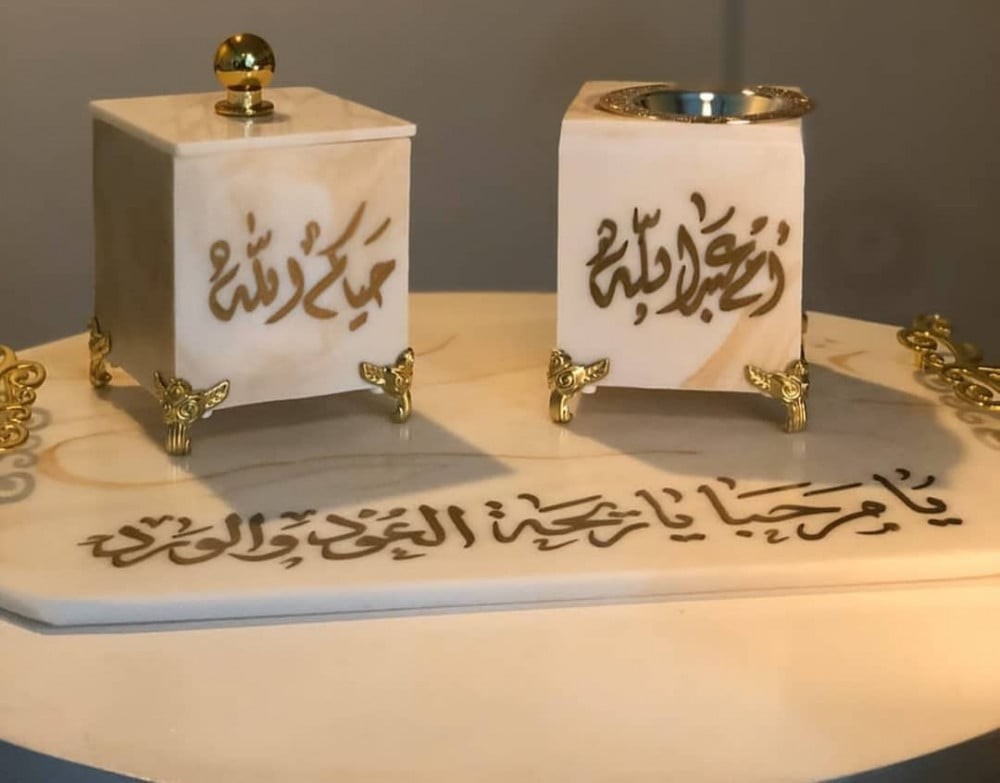 حياكم الله
أم عبدالله
يا مرحبا يا ريحة العود والورد